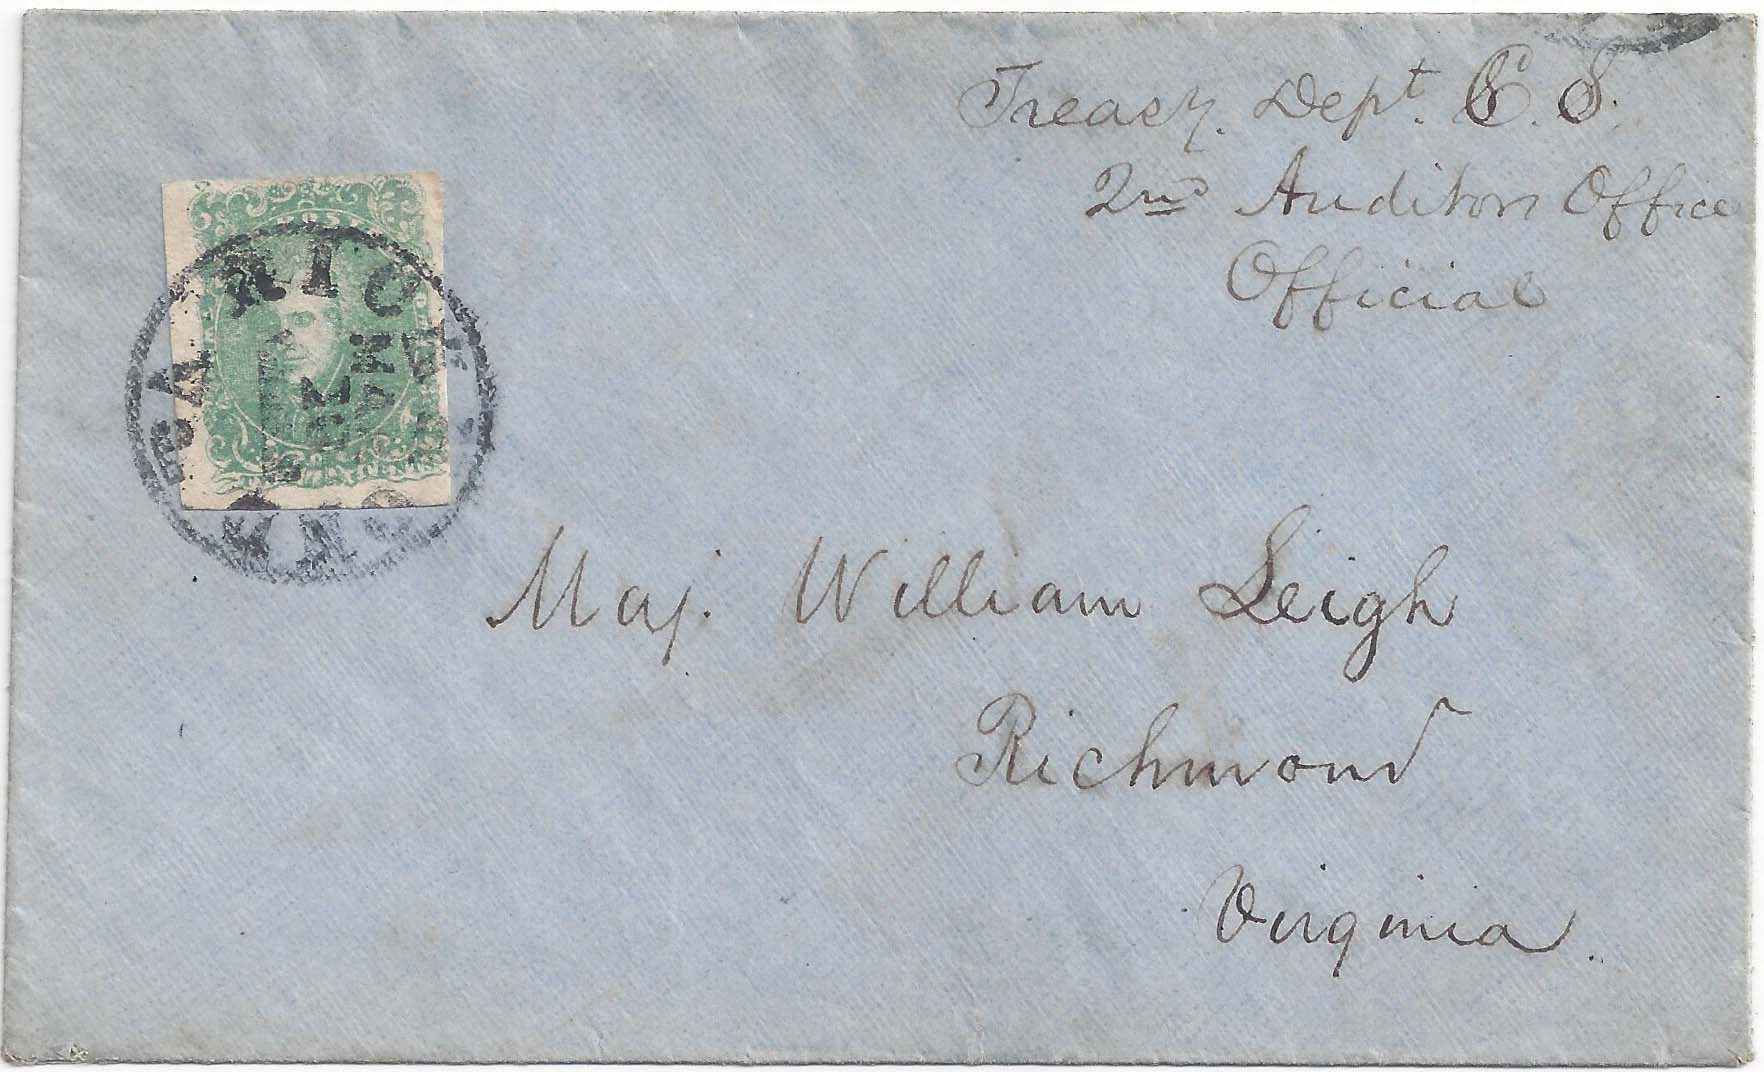 Treasy. Dept. C. S.
2nd Auditors Office
Official
RICHMOND VA.
Maj. William Leigh
Richmond
Virginia.